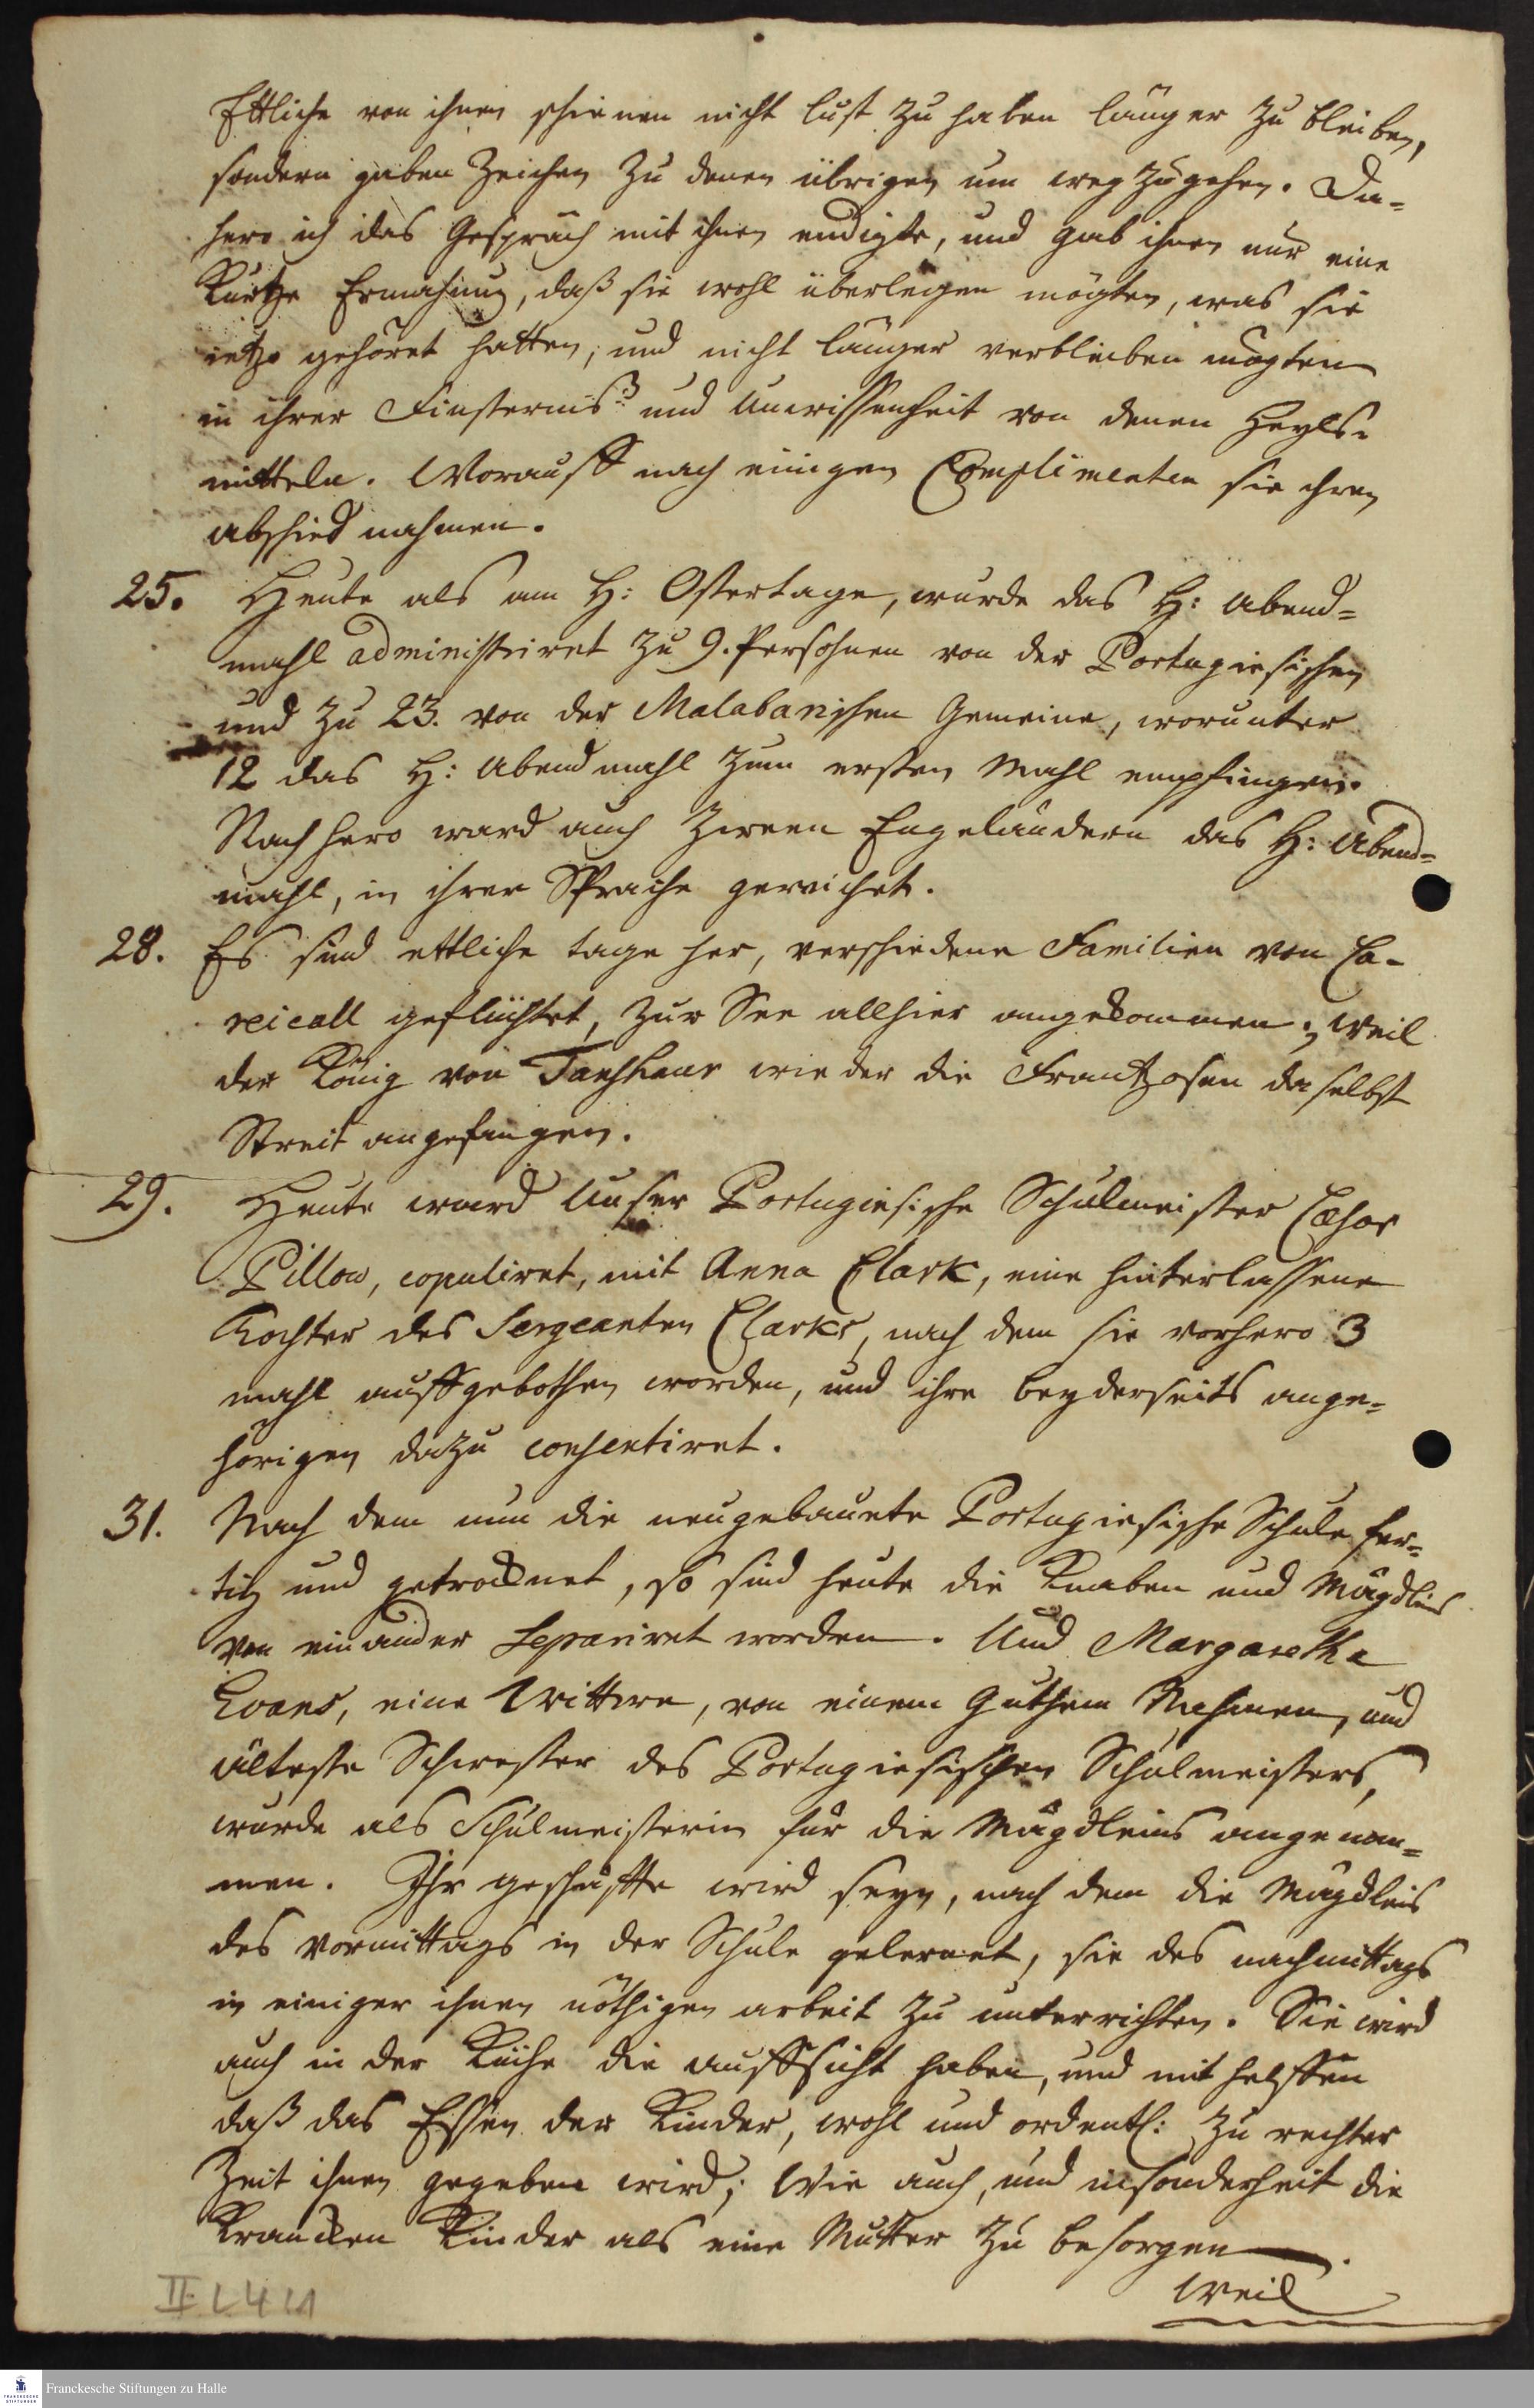 Ettliche von ihnen schienen nicht lust zu haben länger zu bleiben,
sondern gaben Zeichen zu denen übrigen um weg zu gehen. Da-
hero ich das Gespräch mit ihnen endigte, und gab ihnen nur eine
Kurtze Ermahnung, daß sie wohl überlegen mögten, was sie
ietzo gehöret hatten, und nicht länger verbleiben mögten
in ihrer Finsterniß und Unwissenheit von denen Heyls-
mitteln. Worauff nach einigen Complimenten sie ihren
abschied nahmen.
25. Heute als am H: Ostertage, wurde das H: Abend=
mahl administriret zu 9. Persohnen von der Portugiesischen
und zu 23. von der Malabarischen Gemeine, worunter
12 das H: Abendmahl zum ersten Mahl empfingen.
Nachhero ward auch Zween Engeländern das H: Abend=
mahl, in ihrer Sprache gereichet.
28. Es sind ettliche tage her, verschiedene Familien von Ca-
reicall geflüchtet, zur See allhier angekommen; weil
der König von Tanshaur wieder die Frantzosen daselbst
Streit angefangen.
29. Heute ward Unser Portugiesische Schulmeister Cæsar
Pillow, copuliret, mit Anna Clark, eine hinterlassene
Tochter des Sergeanten Clarks, nach dem sie vorhero 3
mahl auffgebothen worden, und ihre beyderseits ange=
hörigen dazu consentiret.
31. Nach dem nun die neugebauete Portugiesische Schule fer=
tig und getrocknet, so sind heute die Knaben und Mägdleins
von einander Separiret worden. Und Margaretha
Evans, eine Wittwe, von einem guthem Nahmen, und
älteste Schwester des Portugiesischen Schulmeisters,
wurde als Schulmeisterin für die Mägdleins angenom=
men. Ihr geschäffte wird seyn, nach dem die Mägdleins
des vormittags in der Schule gelernet, sie des nachmittags
in einiger ihnen nöthigen arbeit zu unterrichten. Sie wird
auch in der Küche die auffsicht haben, und mit helffen
daß das Essen der Kinder, wohl und ordentl: zu rechter
Zeit ihnen gegeben wird; Wie auch, und insonderheit die
Krancken Kinder als eine Mutter zu besorgen.
weil
Franckesche Stiftungen zu Halle